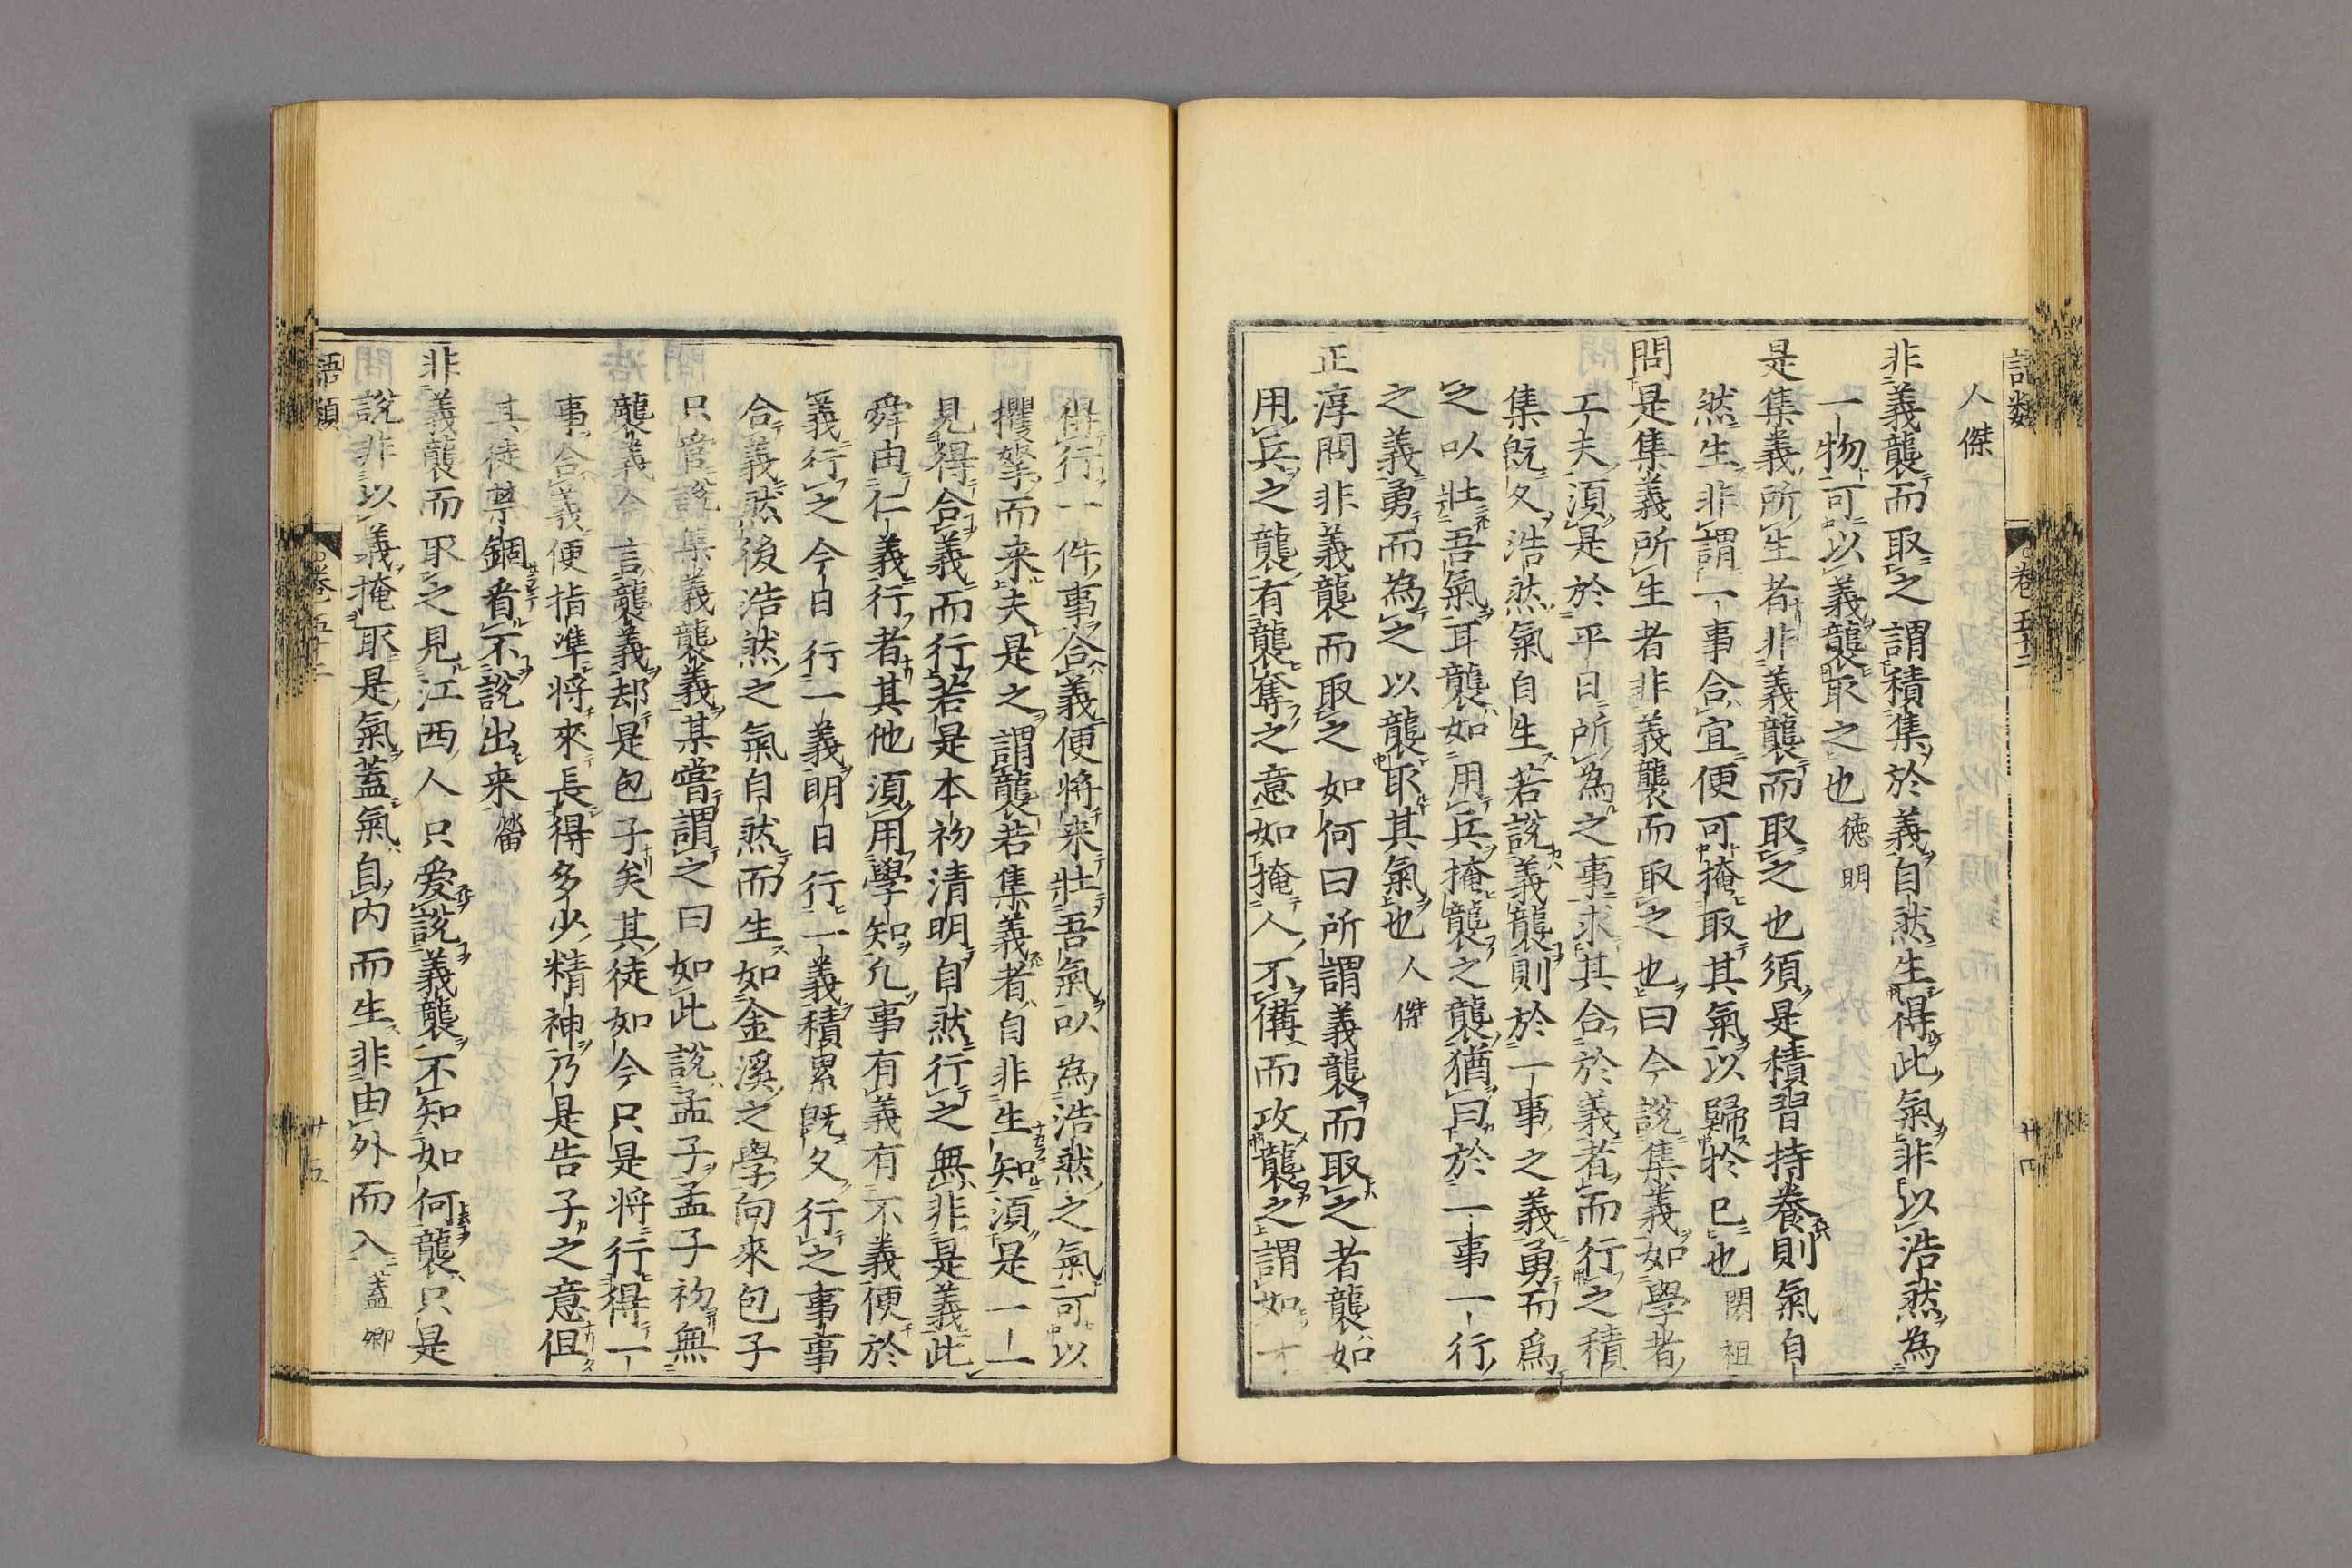 語類
卷五十二
人傑
非義襲而取之謂積集於義自然生得此氣非以浩然為
一物可以義襲取之也德明
是集義所生者非義襲而取之也須是積習持養則氣自
然生非謂一事合宜便可掩取其氣以歸於己也閎祖
問是集義所生者非義襲而取之也曰今說集義如學者
工夫須是於平日所為之事求其合於義者而行之積
集既久浩然氣自生若說義襲則於一事之義勇而爲
之以壯吾氣耳襲如用兵掩襲之襲猶曰於一事一行
之義勇而為之以襲取其氣也人傑
正淳問非義襲而取之如何曰所謂義襲而取之者襲如
用兵之襲有襲奪之意如掩人不備而攻襲之謂如才
得行一件事合義便將来壯吾氣以為浩然之氣可以
攫拏而来夫是之謂襲若集義者自非生知須是一一
見得合義而行若是本初清明自然行之無非是義此
舜由仁義行者其他須用學知凡事有義有不義便於
義行之今日行一義明日行一義積累既久行之事事
合義然後浩然之氣自然而生如金溪之學向來包子
只管說集義襲義某嘗謂之曰如此說孟子孟子初無
襲義今言襲義却是包子矣其徒如今只是將行得一
事合義便指準將來長得多少精神乃是告子之意但
其徒禁錮着不說出来㽦
非義襲而取之見江西人只爱說義襲不知如何襲只是
說非以義掩取是氣蓋氣自内而生非由外而入蓋卿
語類
卷五十二
廿五